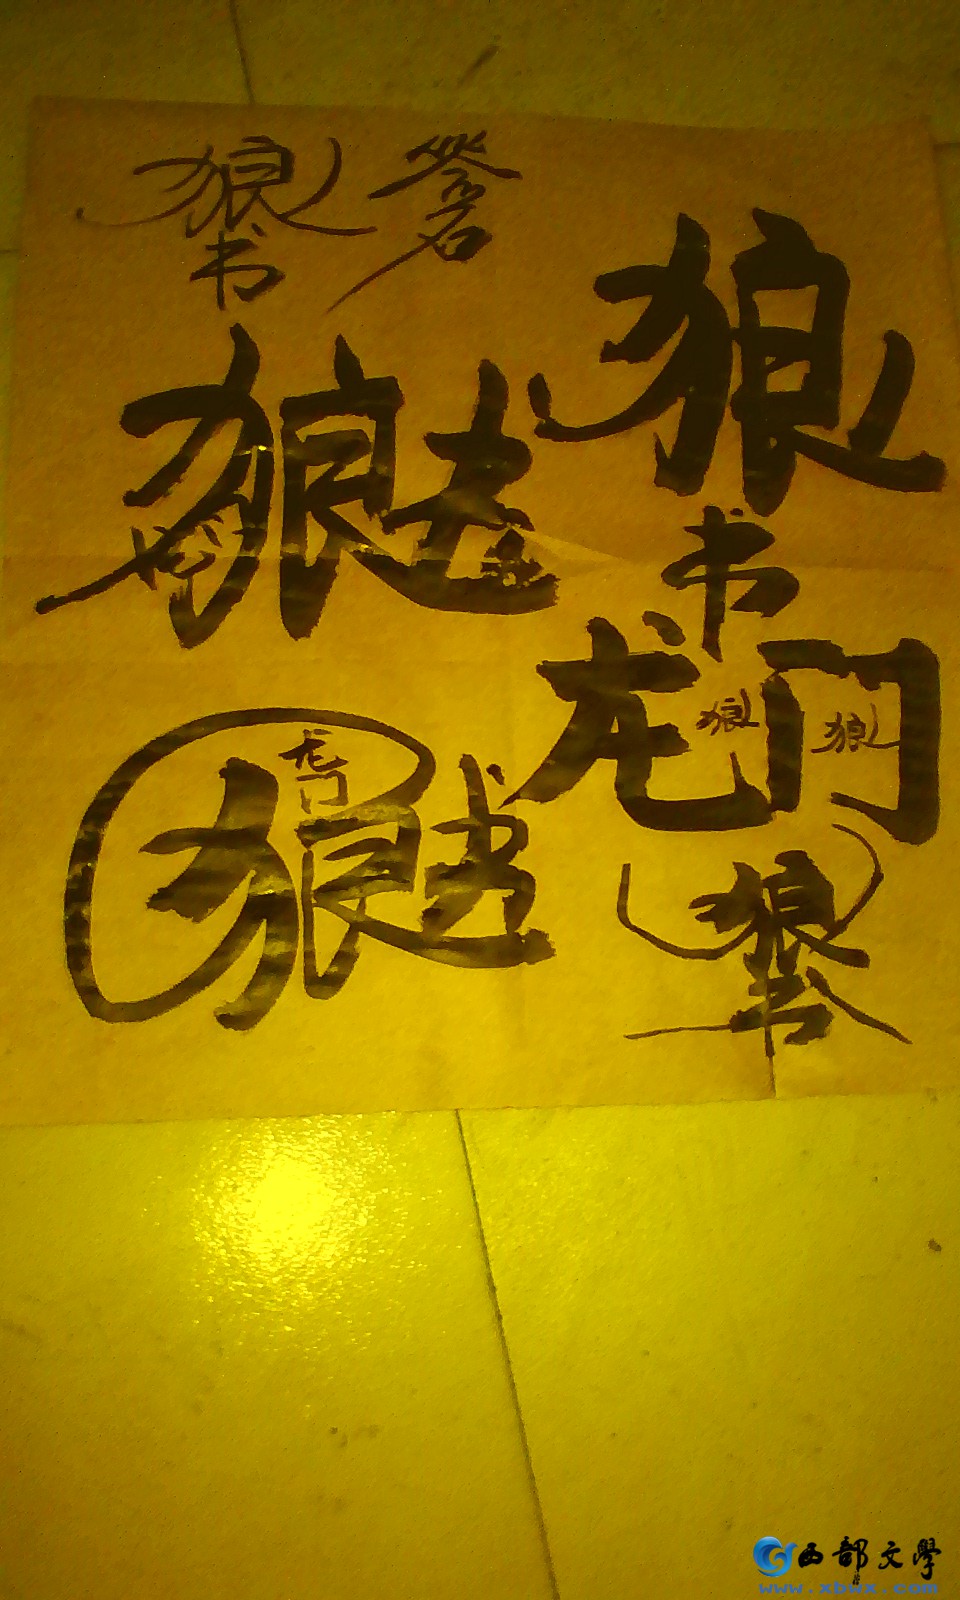 狼书 签名
狼
书
龙门
狼 狼
狼
龙门
狼书
狼书
西部文學
www.xbwx.com